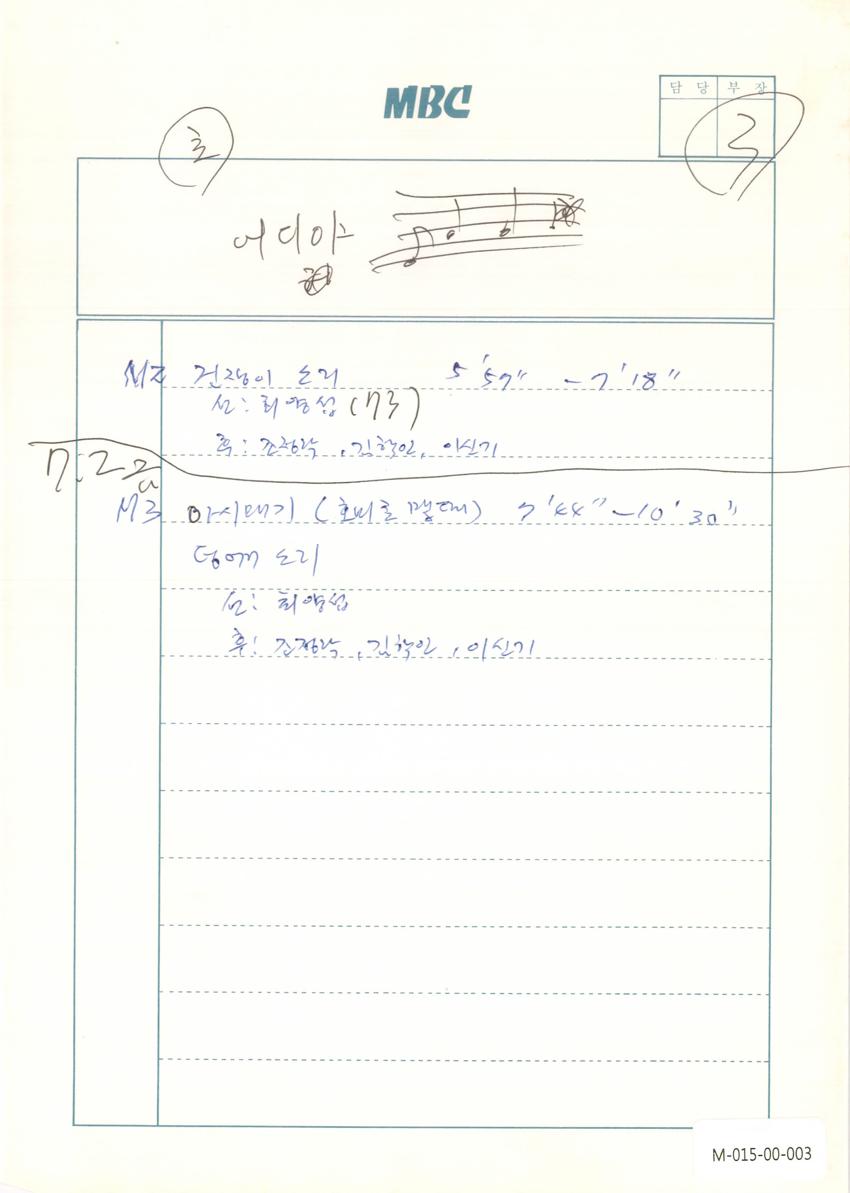 MBC
담 당 부 장
초
3
어디야
M2 건쟁이 소리 5'57" - 7'18"
선: 최영섭 (73)
후: 조정락, 김학인, 이신기
7. 22
M3 아시매기 (호미로 맬때) 7'44" - 10'30"
덩어매 소리
선: 최영섭
후: 조정락, 김학인, 이신기
M-015-00-003